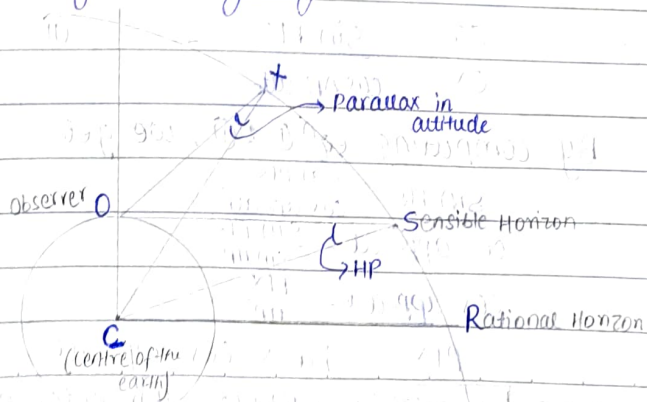 X
Parallax in
altitude
Observer O
Sensible Horizon
HP
Rational Horizon
C
(Centre of the
earth)